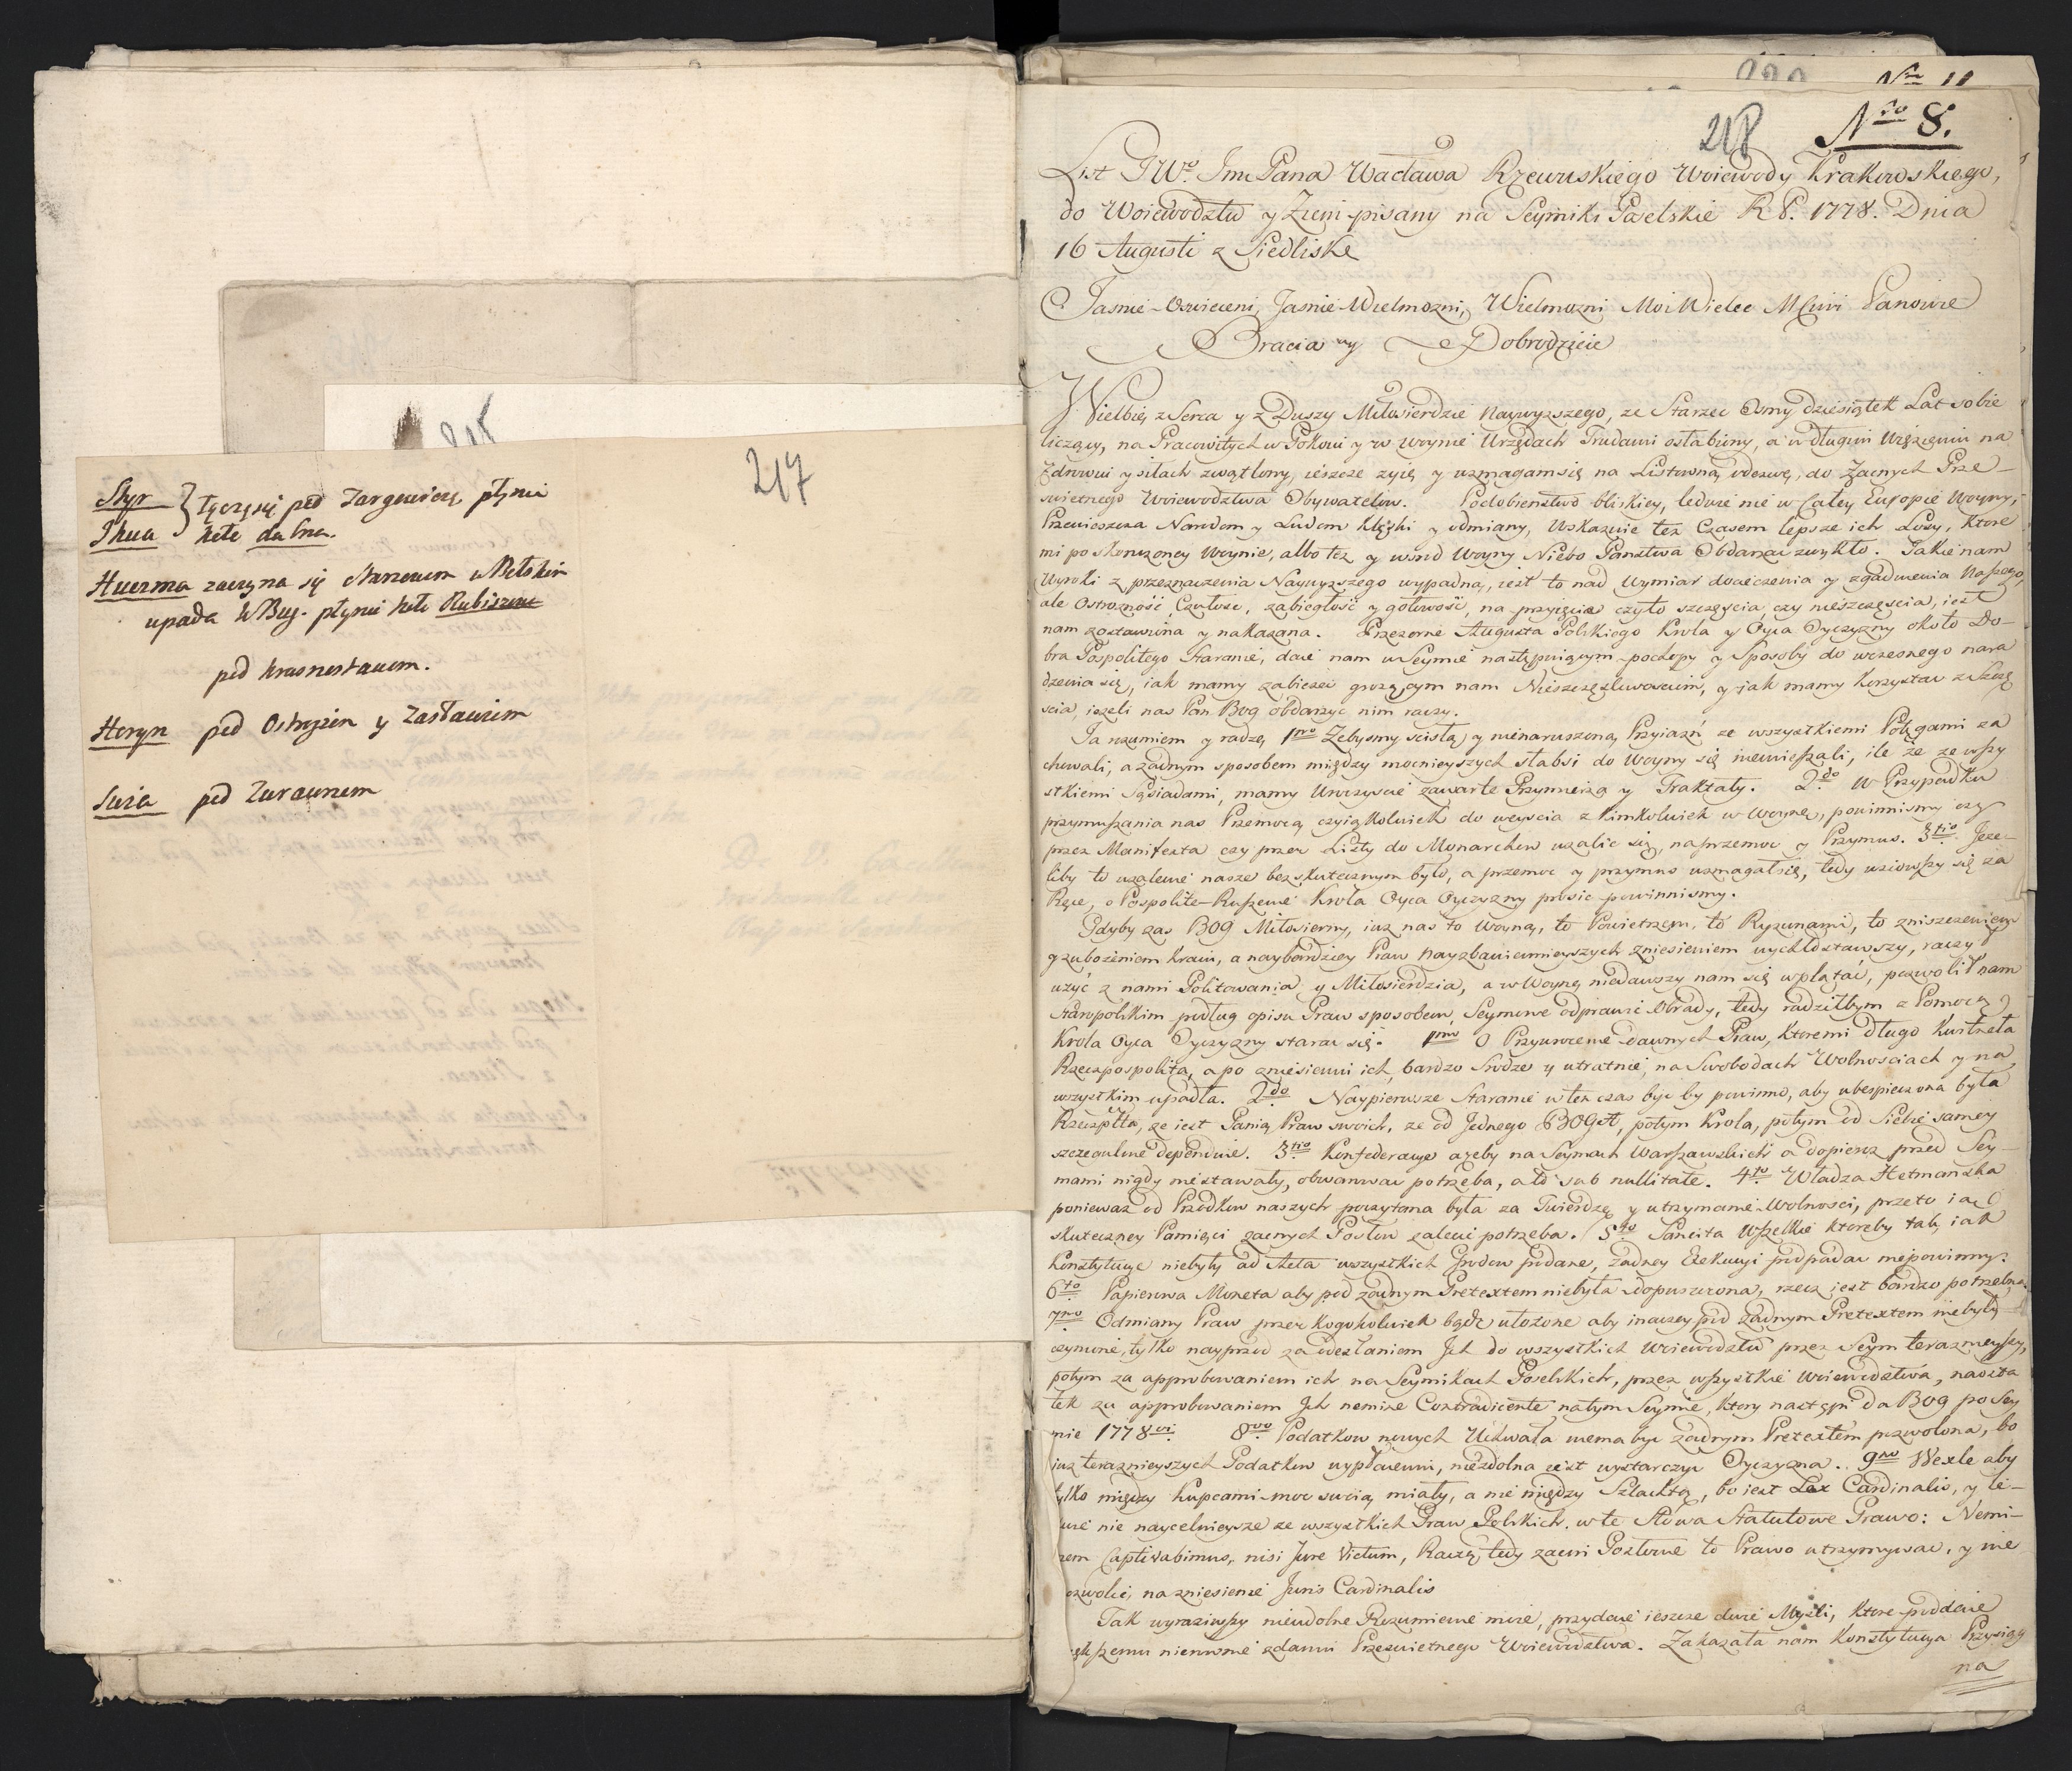 217
Styr
Ikwa } łączą się pod Targowicą, płynie
koło dubna.
Huczwa zaczyna się
upada w Bug. płynie koło Rubieszow
pod krasnostawem.
Horyn pod Ostrogiem y Zasławiem
Łuza pod Zurawnem
Nro 11
218
Nro 8.
List JWo Jmć Pana Wacława Rzewuskiego Woiewody Krakowskiego,
do Woiewodztw y Ziem pisany na Seymiki Poselskie R. P. 1778. Dnia
16 Augusti z Siedliske
Jasnie-Oswieceni, Jasnie Wielmozni, Wielmozni Moi Wielce Mciwi Panowie
Bracia y Dobrodzieie
Wielbię z Serca y z Duszy Miłosierdzie naywyzszego, ze Starzec Osmy dziesiątek Lat sobie
liczący, na Pracowitych w Pokoiu y w woynie Urzędach Trudami osłabiony, a w długim Więzieniu na
Zdrowiu y siłach zwątlony, ieszcze zyię y wzmagam się na Listowną odezwę, do Zacnych Prze-
swietnego Woiewodztwa Obywatelow. Podobienstwo bliskiey, ledwie nie w całey Europie Woyny,
Przenioszcza Narodom y Ludom klęski y odmiany, Wskazuie tez Czasem lepsze ich Losy, ktore
mi po skonczoney Woynie, albo tez y wsrod Woyny Niebo Panstwa Obdarzac zwykło. Jakie nam
Wyroki z przeznaczenia Naywyzszego wypadną, iest to nad wymiar docieczenia y zgadnienia Naszego,
ale Ostrozność, Czułosc, zabiegłość y gotowość, na przyięcie czyto szczęscia czy nieszczęscia, iest
nam zostawiona y nakazana. Przezorne Augusta Polskiego Krola y Oyca Oyczyzny około Do-
bra Pospolitego Staranie, daie nam w Seymie następuiącym pochopy y Sposoby do wczesnego nara
dzenia się, iak mamy zabiezec grozącym nam Nieszczęsliwosciom, y jak mamy korzystac z szczę
scia, iezeli nas Pan Bog obdarzyc nim raczy.
Ja rozumiem y radzę, 1mo Zebysmy scisłą y nienaruszoną Przyiazń ze wszystkiemi Potęgami za
chowali, a zadnym sposobem między mocnieyszych słabsi do Woyny się niemieszali, ile że ze wszy
stkiemi Sąsiadami, mamy Uroczyscie zawarte Przymierza y Traktaty. 2do W Przypadku
przymuszania nas Przemocą czyiąkolwiek do weyscia z kimkolwiek w Woynę, powinnismy czy
przez Manifesta czy przez Listy do Monarchow uzalic się, na przemoc y Przymus. 3tio Jeze-
liby to uzalenie nasze bez skutecznym było, a przemoc y przymus wzmagał się, tedy wziowszy się za
Ręce, o Pospolite-Ruszenie Krola Oyca Oyczyzny prosic powinnismy.
Gdyby zas BOG Miłosierny, iuz nas to Woyną, to Powietrzem, to Ryzunami, to zniszczeniem
y zubozeniem Kraiu, a naybardziey Praw nayzbawiennieyszych zniesieniem wychłostawszy, raczył
uzyć z nami Politowania y Miłosierdzia, a w Woynę niedawszy nam się wplątać, pozwolił nam
Staropolskim podług opisu Praw sposobem, Seymowe odprawic Obrady, tedy radziłbym z Pomocą
Krola Oyca Oyczyzny starac się. 1mo O Przywrocenie dawnych Praw, ktoremi długo kwitnęła
Rzeczpospolita, a po zniesieniu ich, bardzo srodze y utratnie, na Swobodach Wolnosciach y na
wszystkim upadła. 2do Naypierwsze Staranie wten czas byc by powinno, aby ubespieczona była
Rzeczplta, ze iest Panią Praw swoich, ze od Jednego BOGA, potym Krola, potym od Siebie samey
szczegulnie dependuie. 3tio Konfederacye azeby na Seymach Warszawskich a dopieroz przed Sey-
mami nigdy niestawały, obwarowac potrzeba, a to sub nullitate. 4to Władza Hetmanska
poniewaz od Przodkow naszych poczytana była za Twierdzę y utrzymanie Wolnosci, przeto ią
skuteczney Pamięci zacnych Posłow zalecic potrzeba. 5to Sancita Wszelkie ktoreby tak, iak
Konstytucye niebyły ad Acta wszystkich Grodow podane, zadney Exekucyi podpadac niepowinny.
6to Papierowa Moneta aby pod zadnym Pretextem niebyła dopuszczona, rzecz iest bardzo potrzebna.
7mo Odmiany Praw przez kogokolwiek będz ułozone aby inaczey pod zadnym Pretextem niebyły
czynione, tylko nayprzod za odesłaniem Jch do wszystkich Woiewodztw przez Seym terazneyszy,
potym za approbowaniem ich na Seymikach Poselskich, przez wszystkie Woiewodztwa, naosta
tek za approbowaniem Jch nemine Contradicente natym Seymie, ktory nastąpi da Bog po Sey
mie 1778vi. 8vo Podatkow nowych Uchwała niema byc zadnym Pretextem pozwolona, bo
iuz teraznieyszych Podatkow wypłaceniu, niezdolna iest wystarczyc Oyczyzna. 9no Wexle aby
tylko między kupcami moc swoią miały, a nie między Szlachtą, bo iest Lex Cardinalis, y le-
dwie nie naycelnieysze ze wszystkich Praw Polskich, w te Słowa Statutowe Prawo: Nemi-
nem Captivabimus, nisi Jure Victum, Raczą tedy zacni Posłowie to Prawo utrzymywac, y nie
pozwolic, na zniesienie Juris Cardinalis
Tak wyraziwszy nieudolne Rozumienie moie, przydaie ieszcze dwie Mysli, ktore poddaie
zdaniu Przeswietnego Woiewodztwa. Zakazała nam Konstytucya Przysięg
na